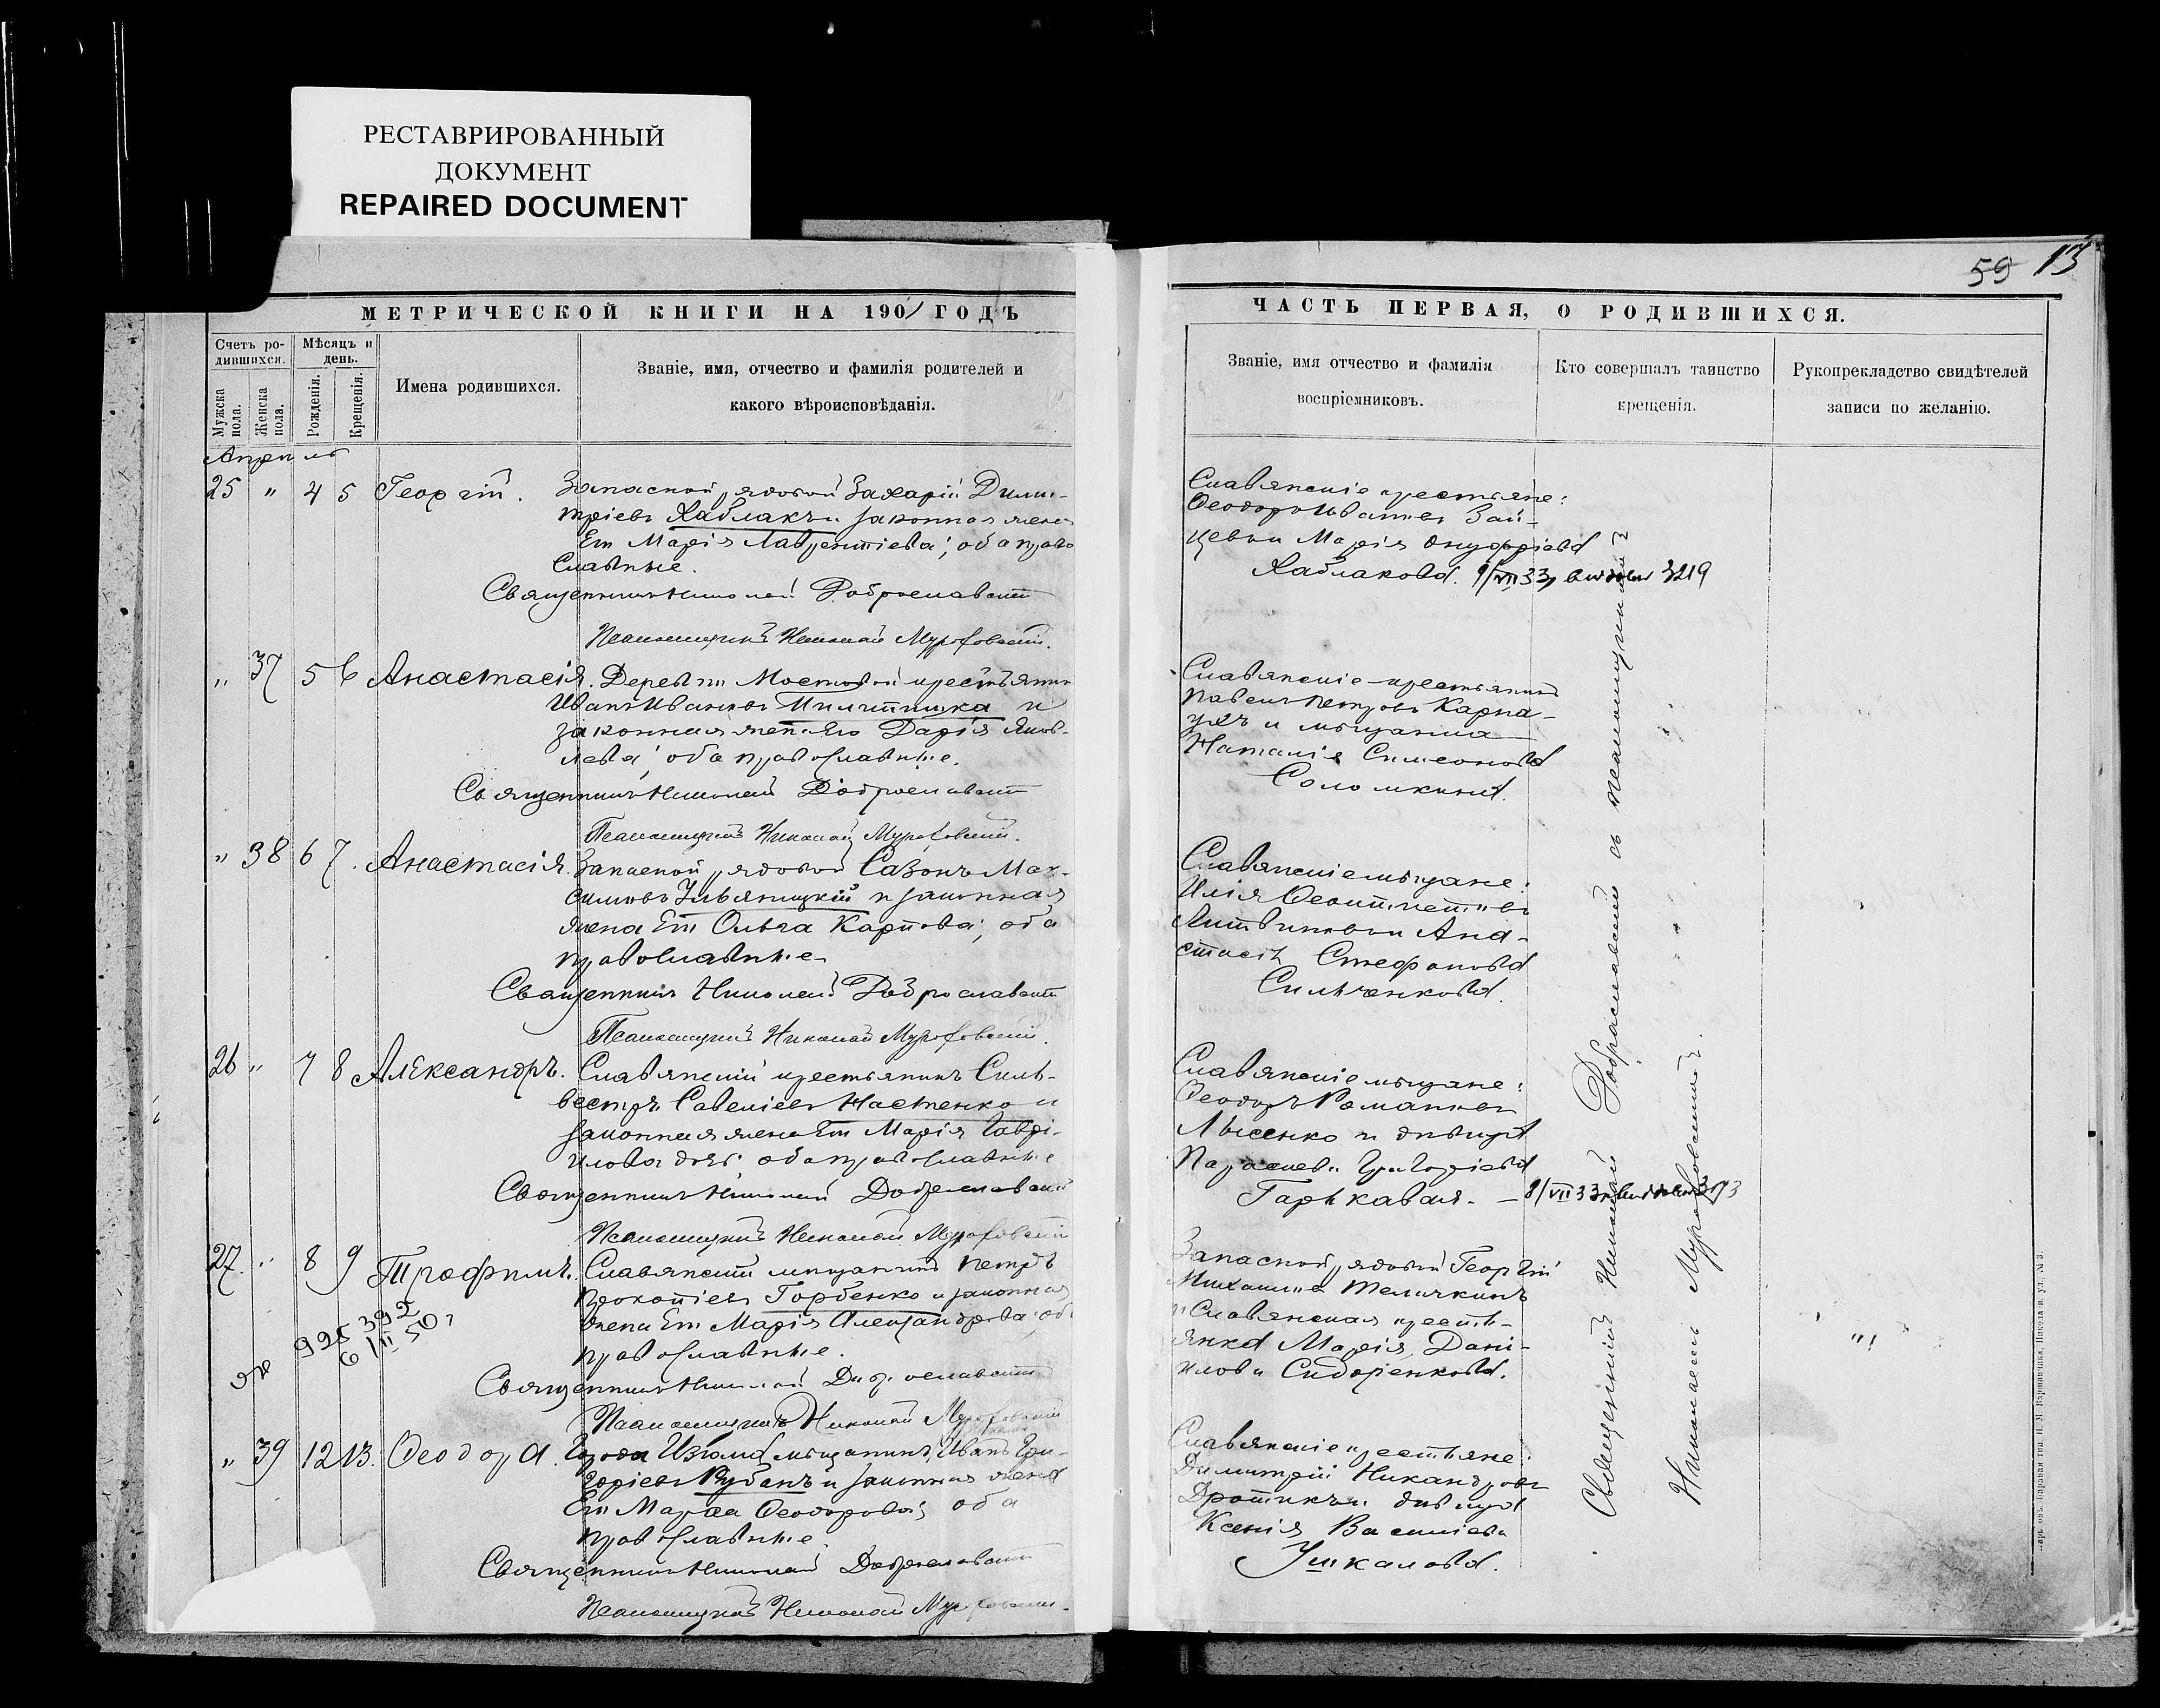 РЕСТАВРИРОВАННЫЙ
ДОКУМЕНТ
REPAIRED DOCUMENT
МЕТРИЧЕСКОЙ КНИГИ НА 1901 ГОДЪ
Счетъ ро-
дившихся.
Мѣсяцъ и
день.
Мужска
пола.
Женска
пола.
Рожденія.
Крещенія.
Имена родившихся.
Званіе, имя, отчество и фамилія родителей и
какого вѣроисповѣданія.
Апрель
25 " 4 5 Георгій. Запасной рядовой Захарій Дими-
тріевъ Хаблакъ и законная жена
Его Марія Лаврентіева; оба право
славные.
Священникъ Николай Доброславскій
Псаломщикъ Николай
" 37 5 6 Анастасія. Деревни Мостовой крестьянинъ
Иванъ Ивановъ и
законная жена его Дарія Яков-
лева; оба православные.
Священникъ Николай Доброславскій
Псаломщикъ Николай
" 38 6 7. Анастасія. Запасной рядовой Сазонъ Мак-
симовъ Ульяницкій и законная
жена Его Ольга Карпова; оба
православные
Священникъ Николай Доброславскій
Псаломщикъ Николай
26 " 7 8 Александръ. Славянскій крестьянинъ Силь-
вестръ Савеліевъ Настенко и
законная жена Его Марія Гаврі-
илова оба православные
Священникъ Николай Доброславскій
Псаломщикъ Николай
27. " 8 9 Трофимъ. Славянскій мещанинъ Петръ
Прокопіевъ Горбенко и законная
жена Его Марія Александрова; об
православные.
Священникъ Николай Доброславскій
Псаломщикъ Николай
925 392
6/III 50
" 39 12 13. Ѳеодора. Города Изюма мѣщанинъ Иванъ Гри-
горіевъ Рубанъ и законная жена
Его Марѳа Ѳеодорова; оба
православные.
Священникъ Николай Доброславскій
Псаломщикъ Николай
59 13
ЧАСТЬ ПЕРВАЯ, О РОДИВШИХСЯ.
Званіе, имя отчество и фамилія
воспріемниковъ.
Кто совершалъ таинство
крещенія.
Рукоприкладство свидѣтелей
записи по желанію.
Славянскіе крестьяне:
Ѳеодоръ Ивановъ Зай-
цевъ и Марія Онуфріева
Хаблакова. 3219
Славянскіе крестьянинъ
Павелъ Петровъ Карна-
ухъ и мѣщанка
Наталія Симеонова
Соломкина.
Славянскіе мѣщане:
Илія
Литвиновъ и Ана-
стасія Стефанова
Сильченкова.
Славянскіе мѣщане:
Ѳеодоръ Романовъ
Лысенко и дѣвица
Параскева Григоріева
Гарькавая.
Запасной рядовой Георгій
Михаиловъ Теличкинъ
и Славянская кресть-
янка Марія Дані-
илова Сидоренкова.
Славянскіе крестьяне:
Димитрій Никандровъ
Дротикъ и дѣвица
Ксенія Василіева
Ушкалова.
Священникъ Николай Доброславскій съ псаломщикомъ
Николаемъ